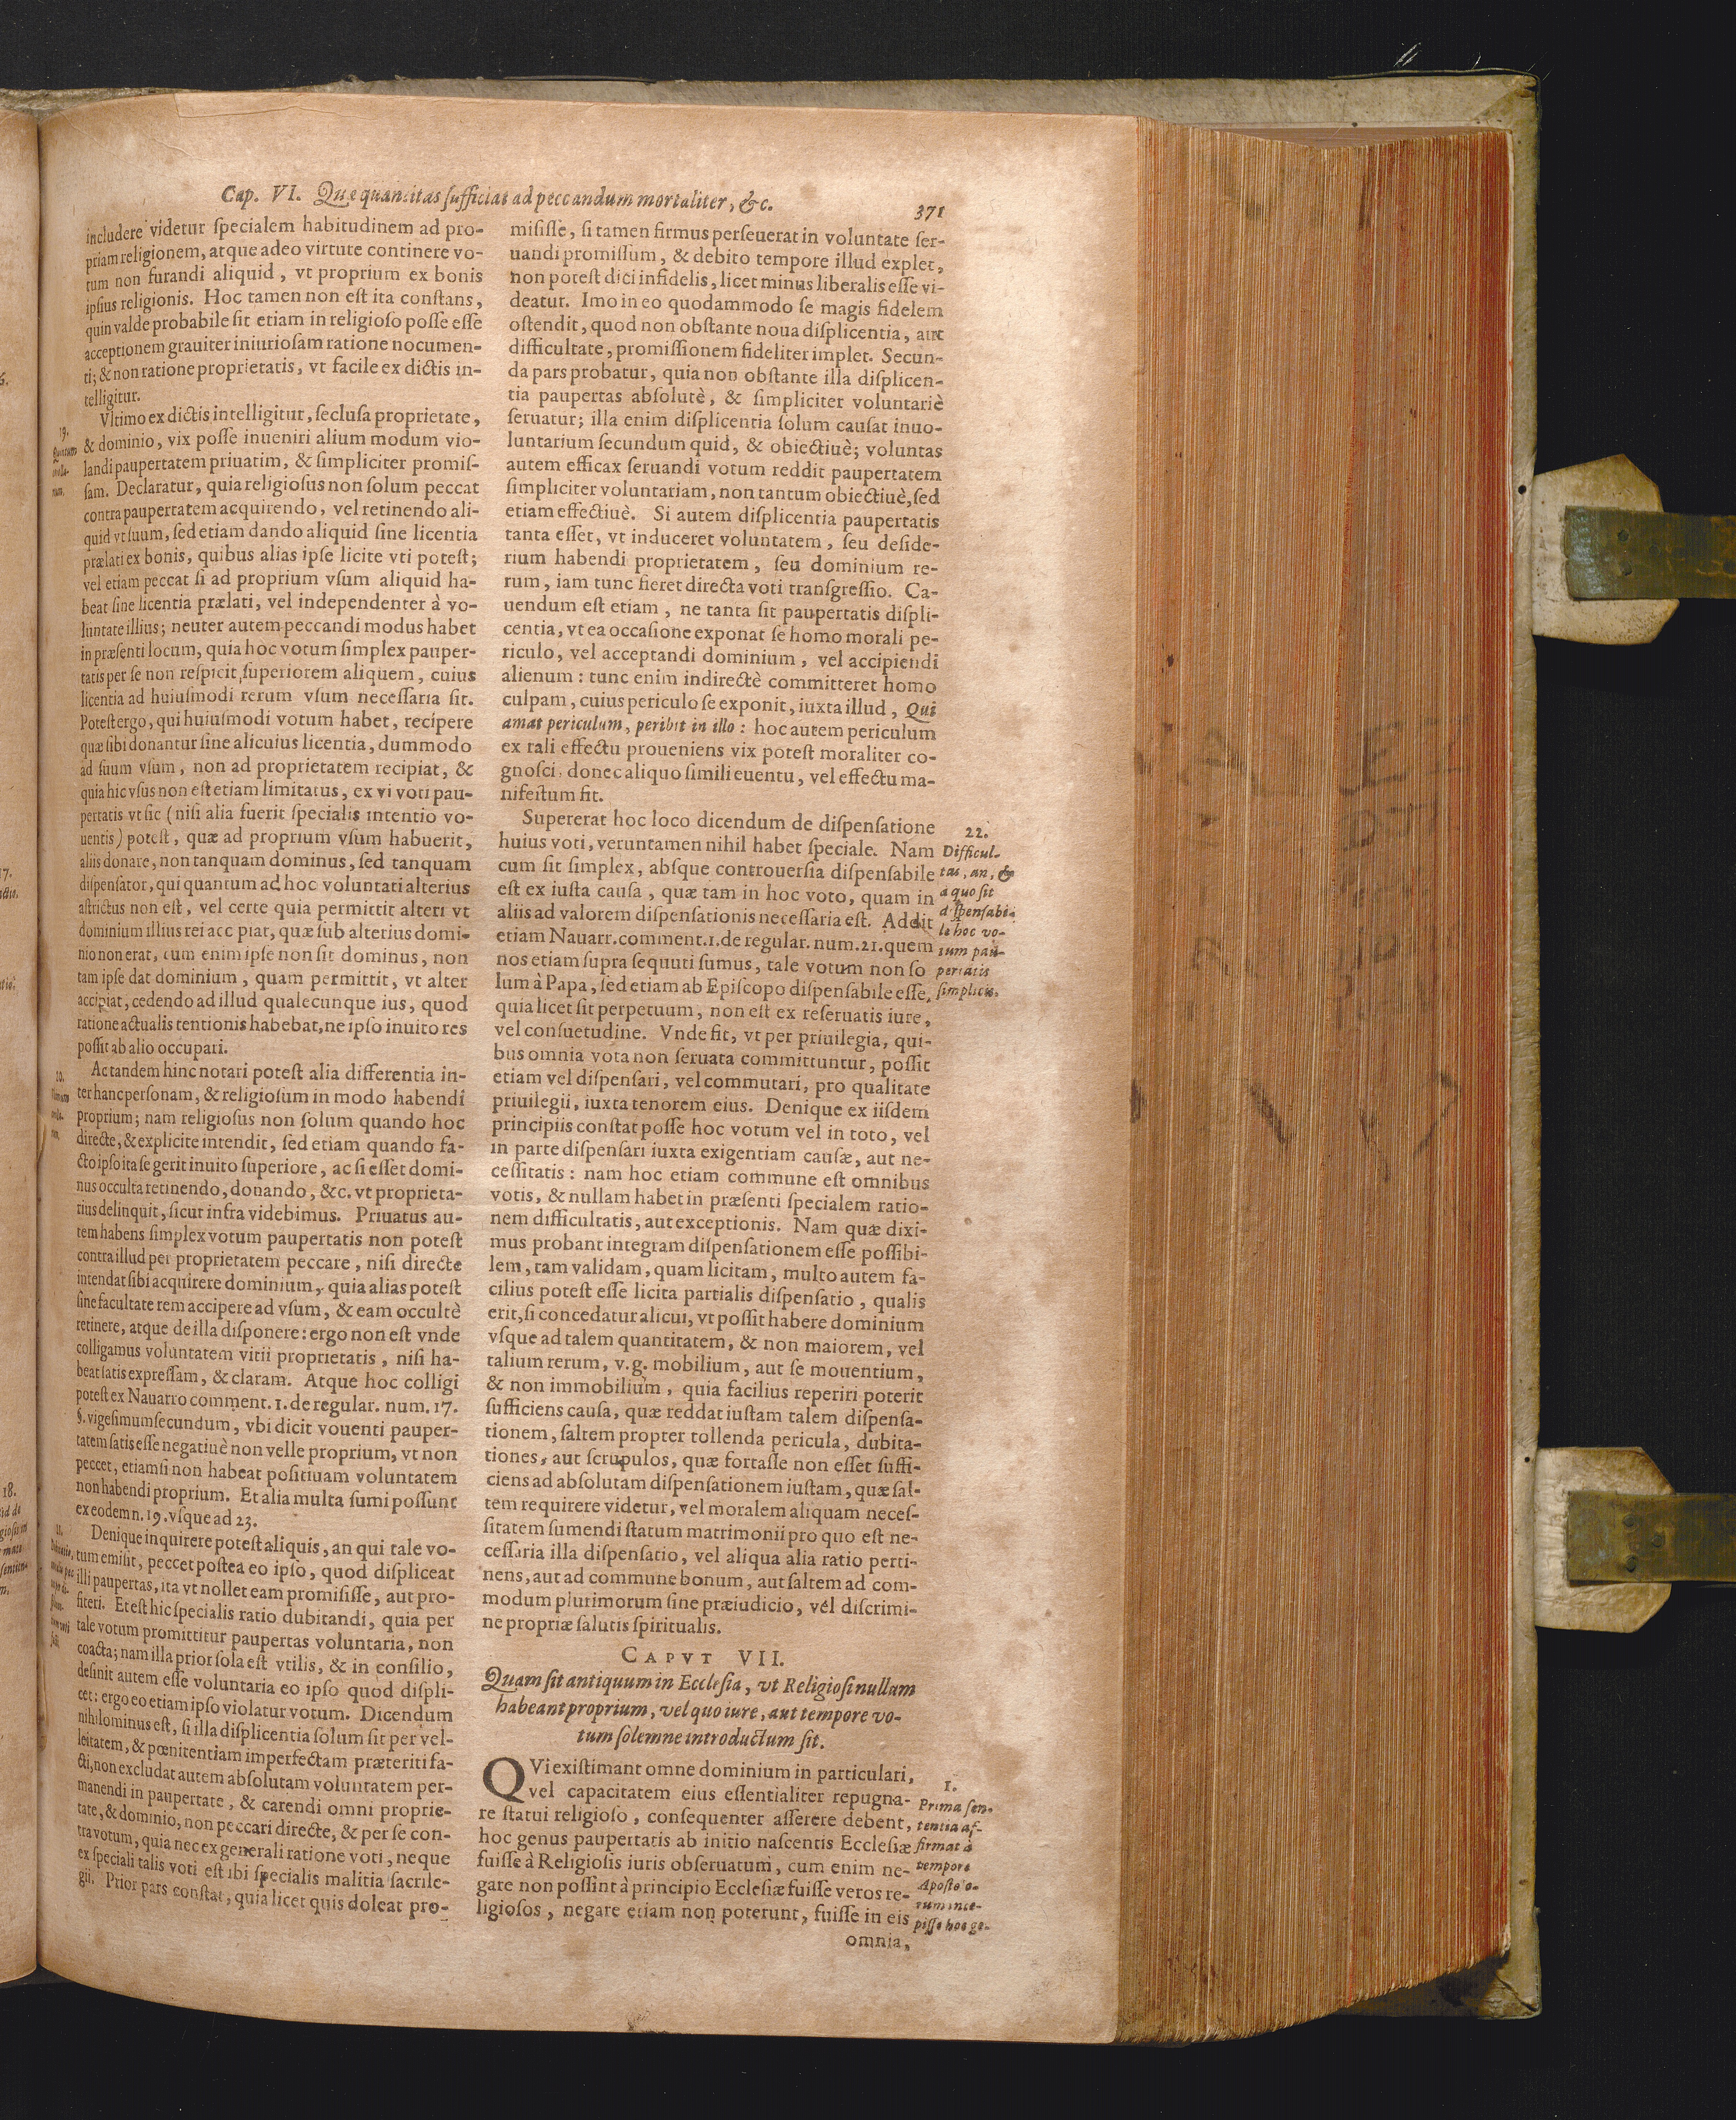 Cap. VI. Quæ quantitas ſufficiat ad peccandum mortaliter, &c.
371
includere videtur ſpecialem habitudinem ad pro-
priam religionem, atque adeo virtute continere vo-
tum non furandi aliquid, vt proprium ex bonis
ipſius religionis. Hoc tamen non eſt ita conſtans,
quin valde probabile ſit etiam in religioſo poſſe eſſe
acceptionem grauiter iniurioſam ratione nocumen-
ti; & non ratione proprietatis, vt facile ex dictis in-
telligitur.
19.
Vltimo ex dictis intelligitur, ſecluſa proprietate,
& dominio, vix poſſe inueniri alium modum vio-
landi paupertatem priuatim, & ſimpliciter promiſ-
ſam. Declaratur, quia religioſus non ſolum peccat
contra paupertatem acquirendo, vel retinendo ali-
quid vt ſuum, ſed etiam dando aliquid ſine licentia
prælati ex bonis, quibus alias ipſe licite vti poteſt;
vel etiam peccat ſi ad proprium vſum aliquid ha-
beat ſine licentia prælati, vel independenter à vo-
luntate illius; neuter autem peccandi modus habet
in præſenti locum, quia hoc votum ſimplex pauper-
tatis per ſe non reſpicit ſuperiorem aliquem, cuius
licentia ad huiuſmodi rerum vſum neceſſaria ſit.
Poteſt ergo, qui huiuſmodi votum habet, recipere
quæ ſibi donantur ſine alicuius licentia, dummodo
ad ſuum vſum, non ad proprietatem recipiat, &
quia hic vſus non eſt etiam limitatus, ex vi voti pau-
pertatis vt ſic (niſi alia fuerit ſpecialis intentio vo-
uentis) poteſt, quæ ad proprium vſum habuerit,
aliis donare, non tanquam dominus, ſed tanquam
diſpenſator, qui quantum ad hoc voluntati alterius
aſtrictus non eſt, vel certe quia permittit alteri vt
dominium illius rei acc piat, quæ ſub alterius domi-
nio non erat, cum enim ipſe non ſit dominus, non
tam ipſe dat dominium, quam permittit, vt alter
accipiat, cedendo ad illud qualecunque ius, quod
ratione actualis tentionis habebat, ne ipſo inuito res
poſſit ab alio occupari.
20.
Ac tandem hinc notari poteſt alia differentia in-
ter hanc perſonam, & religioſum in modo habendi
proprium; nam religioſus non ſolum quando hoc
directe, & explicite intendit, ſed etiam quando fa-
cto ipſo ita ſe gerit inuito ſuperiore, ac ſi eſſet domi-
nus occulta retinendo, donando, &c. vt proprieta-
rius delinquit, ſicut infra videbimus. Priuatus au-
tem habens ſimplex votum paupertatis non poteſt
contra illud per proprietatem peccare, niſi directe
intendat ſibi acquirere dominium, quia alias poteſt
ſine facultate rem accipere ad vſum, & eam occultè
retinere, atque de illa diſponere: ergo non eſt vnde
colligamus voluntatem vitii proprietatis, niſi ha-
beat ſatis expreſſam, & claram. Atque hoc colligi
poteſt ex Nauarro comment. 1. de regular. num. 17.
§. vigeſimumſecundum, vbi dicit vouenti pauper-
tatem ſatis eſſe negatiuè non velle proprium, vt non
peccet, etiamſi non habeat poſitiuam voluntatem
non habendi proprium. Et alia multa ſumi poſſunt
ex eodem n. 19. vſque ad 23.
Denique inquirere poteſt aliquis, an qui tale vo-
tum emiſit, peccet poſtea eo ipſo, quod diſpliceat
illi paupertas, ita vt nollet eam promiſiſſe, aut pro-
fiteri. Et eſt hic ſpecialis ratio dubitandi, quia per
tale votum promittitur paupertas voluntaria, non
coacta; nam illa prior ſola eſt vtilis, & in conſilio,
deſinit autem eſſe voluntaria eo ipſo quod diſpli-
cet: ergo eo etiam ipſo violatur votum. Dicendum
nihilominus eſt, ſi illa diſplicentia ſolum ſit per vel-
leitatem, & pœnitentiam imperfectam præteriti fa-
cti, non excludat autem abſolutam voluntatem per-
manendi in paupertate, & carendi omni proprie-
tate, & dominio, non peccari directe, & per ſe con-
tra votum, quia nec ex generali ratione voti, neque
ex ſpeciali talis voti eſt ibi ſpecialis malitia ſacrile-
gii. Prior pars conſtat, quia licet quis doleat pro-
miſiſſe, ſi tamen firmus perſeuerat in voluntate ſer-
uandi promiſſum, & debito tempore illud explet,
non poteſt dici infidelis, licet minus liberalis eſſe vi-
deatur. Imo in eo quodammodo ſe magis fidelem
oſtendit, quod non obſtante noua diſplicentia, aut
difficultate, promiſſionem fideliter implet. Secun-
da pars probatur, quia non obſtante illa diſplicen-
tia paupertas abſolutè, & ſimpliciter voluntariè
ſeruatur; illa enim diſplicentia ſolum cauſat inuo-
luntarium ſecundum quid, & obiectiuè; voluntas
autem efficax ſeruandi votum reddit paupertatem
ſimpliciter voluntariam, non tantum obiectiuè, ſed
etiam effectiuè. Si autem diſplicentia paupertatis
tanta eſſet, vt induceret voluntatem, ſeu deſide-
rium habendi proprietatem, ſeu dominium re-
rum, iam tunc fieret directa voti tranſgreſſio. Ca-
uendum eſt etiam, ne tanta ſit paupertatis diſpli-
centia, vt ea occaſione exponat ſe homo morali pe-
riculo, vel acceptandi dominium, vel accipiendi
alienum: tunc enim indirectè committeret homo
culpam, cuius periculo ſe exponit, iuxta illud, Qui
amat periculum, peribit in illo: hoc autem periculum
ex tali effectu proueniens vix poteſt moraliter co-
gnoſci, donec aliquo ſimili euentu, vel effectu ma-
nifeſtum fit.
Supererat hoc loco dicendum de diſpenſatione
huius voti, veruntamen nihil habet ſpeciale. Nam
cum ſit ſimplex, abſque controuerſia diſpenſabile
eſt ex iuſta cauſa, quæ tam in hoc voto, quam in
aliis ad valorem diſpenſationis neceſſaria eſt. Addit
etiam Nauarr. comment. 1. de regular. num. 21. quem
nos etiam ſupra ſequuti ſumus, tale votum non ſo
lum à Papa, ſed etiam ab Epiſcopo diſpenſabile eſſe,
quia licet ſit perpetuum, non eſt ex reſeruatis iure,
vel conſuetudine. Vnde fit, vt per priuilegia, qui-
bus omnia vota non ſeruata committuntur, poſſit
etiam vel diſpenſari, vel commutari, pro qualitate
priuilegii, iuxta tenorem eius. Denique ex iiſdem
principiis conſtat poſſe hoc votum vel in toto, vel
in parte diſpenſari iuxta exigentiam cauſæ, aut ne-
ceſſitatis: nam hoc etiam commune eſt omnibus
votis, & nullam habet in præſenti ſpecialem ratio-
nem difficultatis, aut exceptionis. Nam quæ dixi-
mus probant integram diſpenſationem eſſe poſſibi-
lem, tam validam, quam licitam, multo autem fa-
cilius poteſt eſſe licita partialis diſpenſatio, qualis
erit, ſi concedatur alicui, vt poſſit habere dominium
vſque ad talem quantitatem, & non maiorem, vel
talium rerum, v.g. mobilium, aut ſe mouentium,
& non immobilium, quia facilius reperiri poterit
ſufficiens cauſa, quæ reddat iuſtam talem diſpenſa-
tionem, ſaltem propter tollenda pericula, dubita-
tiones, aut ſcrupulos, quæ fortaſſe non eſſet ſuffi-
ciens ad abſolutam diſpenſationem iuſtam, quæ ſal-
tem requirere videtur, vel moralem aliquam neceſ-
ſitatem ſumendi ſtatum matrimonii pro quo eſt ne-
ceſſaria illa diſpenſatio, vel aliqua alia ratio perti-
nens, aut ad commune bonum, aut ſaltem ad com-
modum plurimorum ſine præiudicio, vel diſcrimi-
ne propriæ ſalutis ſpiritualis.
22.
Difficul-
tas, an, &
a quo ſit
diſpenſabi-
le hoc vo-
tum pau-
pertatis
ſimplicis.
CAPVT VII.
Quam ſit antiquum in Eccleſia, vt Religioſi nullum
habeant proprium, vel quo iure, aut tempore vo-
tum ſolemne introductum ſit.
QVi exiſtimant omne dominium in particulari,
vel capacitatem eius eſſentialiter repugna-
re ſtatui religioſo, conſequenter aſſerere debent,
hoc genus paupertatis ab initio naſcentis Eccleſiæ
fuiſſe à Religioſis iuris obſeruatum, cum enim ne-
gare non poſſint à principio Eccleſiæ fuiſſe veros re-
ligioſos, negare etiam non poterunt, fuiſſe in eis
omnia,
1.
Prima ſen-
tentia aſ-
firmat à
tempore
Apoſtolo-
rum ince-
piſſe hoc ge-